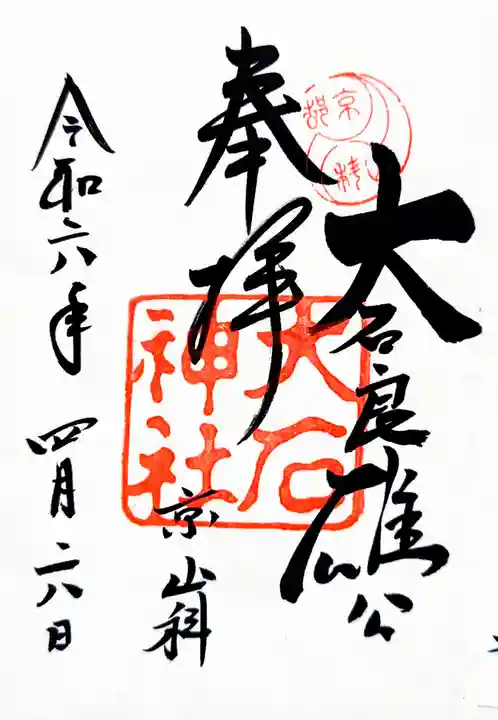 大石良雄公
奉拝
大石
神社
京山科
令和六年 四月二六日